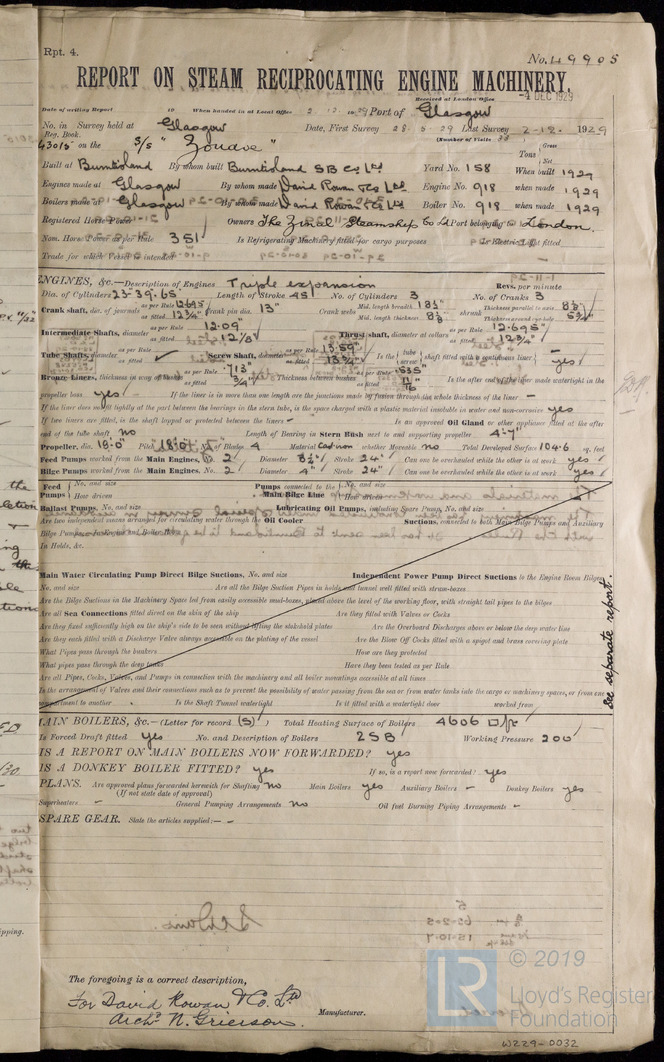 Rpt. 4.
No. 49905
REPORT ON STEAM RECIPROCATING ENGINE MACHINERY.
Received at London Office -4 DEC 1929
Date of writing Report 19 When handed in at Local Office 3.12.1929 Port of Glasgow
No. in Survey held at Glasgow Date, First Survey 28.5.29 Last Survey 2-12. 1929
Reg. Book. (Number of Visits 33)
43015 on the S/S "Zouave" Tons { Gross Net
Built at Burntisland By whom built Burntisland S B Co Ltd Yard No. 158 When built 1929
Engines made at Glasgow By whom made David Rowan & Co Ltd Engine No. 918 when made 1929
Boilers made at Glasgow By whom made David Rowan & Co Ltd Boiler No. 918 when made 1929
Registered Horse Power Owners The Zinal Steamship Co Ld Port belonging to London.
Nom. Horse Power as per Rule 351 Is Refrigerating Machinery fitted for cargo purposes Is Electric Light fitted
Trade for which Vessel is intended
ENGINES, &c.—Description of Engines Triple expansion Revs. per minute
Dia. of Cylinders 23-39.65 Length of Stroke 45 No. of Cylinders 3 No. of Cranks 3
Crank shaft, dia. of journals as per Rule 12.695 as fitted 12¾" Crank pin dia. 13" Crank webs Mid. length breadth Mid. length thickness shrunk Thickness parallel to axis Thickness around eye-hole
Intermediate Shafts, diameter as per Rule 12.09 as fitted 12⅛" Thrust shaft, diameter at collars as per Rule 12.695" as fitted 12¾"
Tube Shafts, diameter as per Rule as fitted Screw Shaft, diameter as per Rule 13.59" as fitted 13¾" Is the { tube screw } shaft fitted with a continuous liner { yes
Bronze Liners, thickness in way of bushes as per Rule .713" as fitted ¾" Thickness between bushes as per Rule .535 as fitted 11/16 Is the after end of the liner made watertight in the
propeller boss yes If the liner is in more than one length are the junctions made by fusion through the whole thickness of the liner -
If the liner does not fit tightly at the part between the bearings in the stern tube, is the space charged with a plastic material insoluble in water and non-corrosive yes
If two liners are fitted, is the shaft lapped or protected between the liners - Is an approved Oil Gland or other appliance fitted at the after
end of the tube shaft no Length of Bearing in Stern Bush next to and supporting propeller 4'-7"
Propeller, dia. 18'-0" Pitch No. of Blades 4 Material whether Moveable no Total Developed Surface 104.6 sq. feet
Feed Pumps worked from the Main Engines, No. 2 Diameter 3½" Stroke 24" Can one be overhauled while the other is at work yes
Bilge Pumps worked from the Main Engines, No. 2 Diameter 4" Stroke 24" Can one be overhauled while the other is at work yes
Feed Pumps { No. and size How driven Pumps connected to the Main Bilge Line { No. and size How driven
Ballast Pumps, No. and size Lubricating Oil Pumps, including Spare Pump, No. and size
Are two independent means arranged for circulating water through the Oil Cooler Suctions, connected to both Main Bilge Pumps and Auxiliary
Bilge Pumps
In Holds, &c.
Main Water Circulating Pump Direct Bilge Suctions, No. and size Independent Power Pump Direct Suctions to the Engine Room Bilges,
No. and size Are all the Bilge Suction Pipes in holds and tunnel well fitted with strum-boxes
Are the Bilge Suctions in the Machinery Space led from easily accessible mud-boxes, placed above the level of the working floor, with straight tail pipes to the bilges
Are all Sea Connections fitted direct on the skin of the ship Are they fitted with Valves or Cocks
Are they fixed sufficiently high on the ship's side to be seen without lifting the stokehold plates Are the Overboard Discharges above or below the deep water line
Are they each fitted with a Discharge Valve always accessible on the plating of the vessel Are the Blow Off Cocks fitted with a spigot and brass covering plate
What Pipes pass through the bunkers How are they protected
What pipes pass through the deep tanks Have they been tested as per Rule
Are all Pipes, Cocks, Valves, and Pumps in connection with the machinery and all boiler mountings accessible at all times
Is the arrangement of Valves and their connections such as to prevent the possibility of water passing from the sea or from water tanks into the cargo or machinery spaces, or from one
compartment to another Is the Shaft Tunnel watertight Is it fitted with a watertight door worked from
See separate report.
MAIN BOILERS, &c.—(Letter for record (S)) Total Heating Surface of Boilers 4606 □/ft
Is Forced Draft fitted yes No. and Description of Boilers 2SB Working Pressure 200
IS A REPORT ON MAIN BOILERS NOW FORWARDED? yes
IS A DONKEY BOILER FITTED? yes If so, is a report now forwarded? yes
PLANS. Are approved plans forwarded herewith for Shafting no Main Boilers yes Auxiliary Boilers - Donkey Boilers yes
(If not state date of approval)
Superheaters - General Pumping Arrangements no Oil fuel Burning Piping Arrangements -
SPARE GEAR. State the articles supplied:— -
The foregoing is a correct description,
For David Rowan & Co. Ltd
Archd N. Grierson. Manufacturer.
© 2019
LR
Lloyd's Register
Foundation
W229-0032